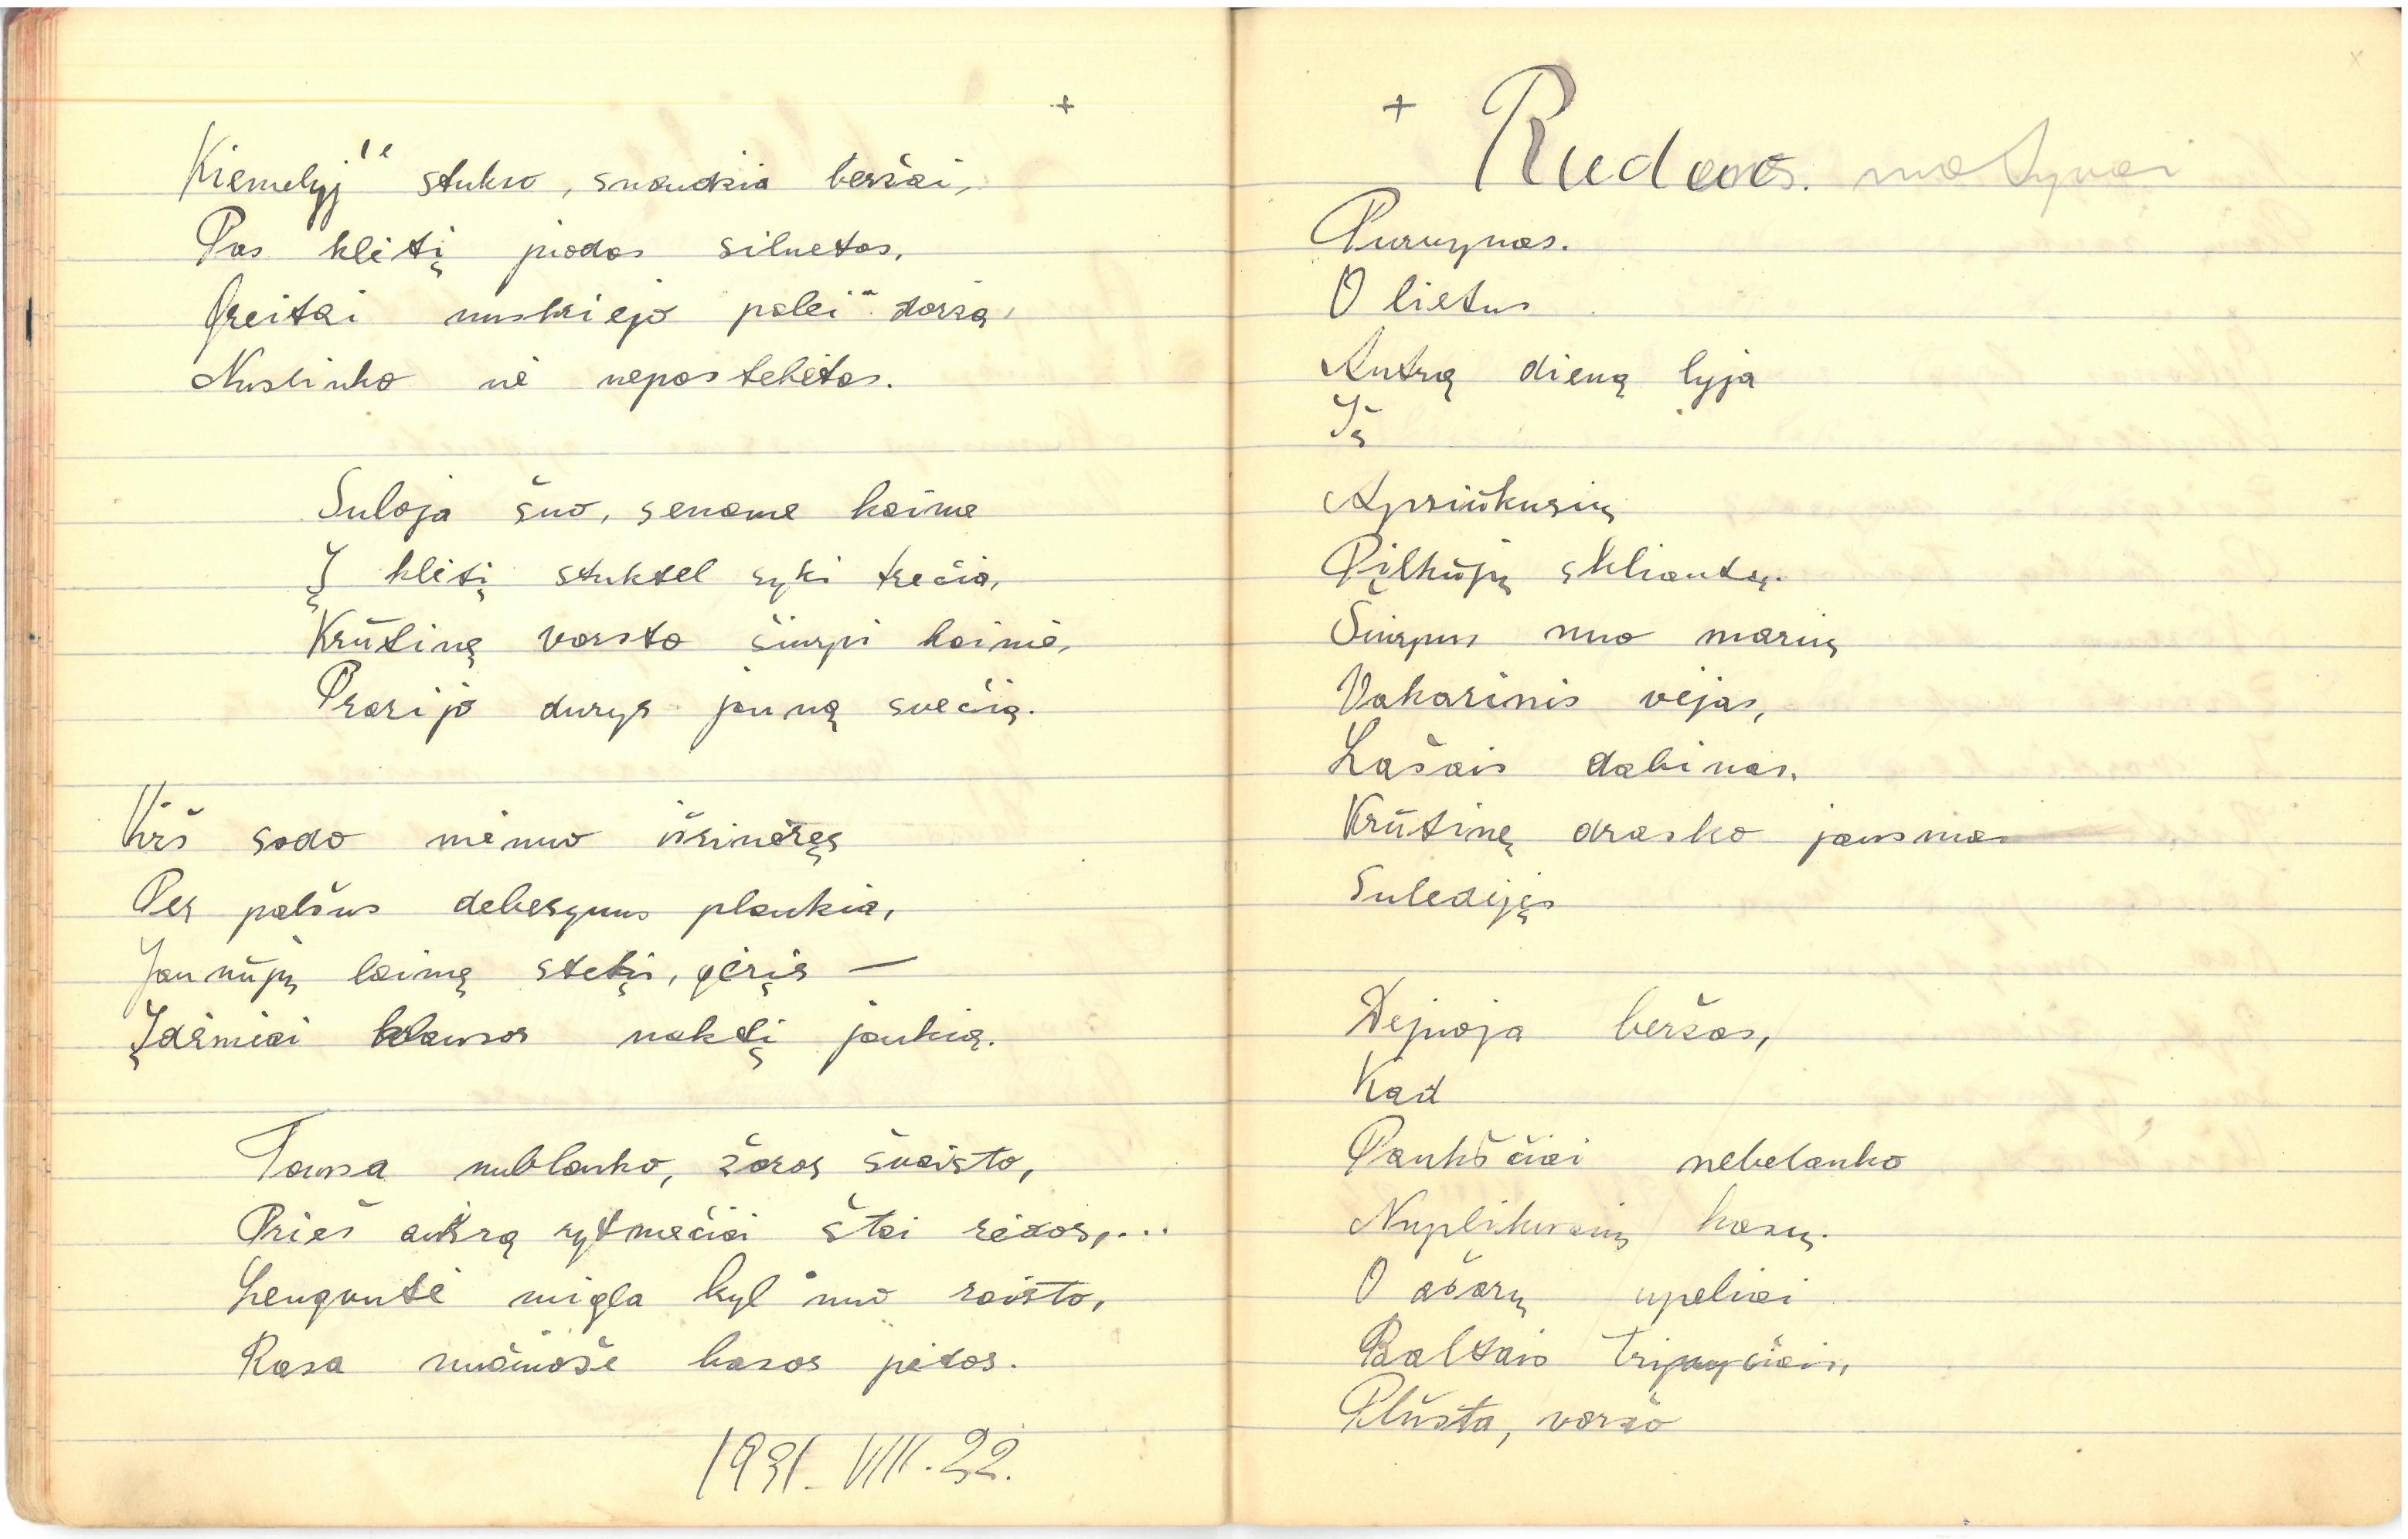 +
Kiemelyj" stukso, snaudžia beržai,
Pas klėtį juodas siluetas.
Greitai nuskriejo palei daržą,
Nuslinko nė nepastebėtas.
Suloja šuo, sename kaime
Į klėtį stuktel sykį trečią,
Krūtinę varsto šiurpi baimė,
Prarijo durys jauną svečią.
Virš sodo mėnuo išsinėręs
Per palšus debesynus plaukia,
Jaunųjų laimę stebįs, gėrįs —
Įdėmiai klausos naktį jaukią.
Tamsa nublanko, žaros švaisto,
Prieš aušrą rytmečiai štai rėdos,...
Lengvutė migla kyl nuo raisto,
Rasa nušluostė basos pėdos.
1931. VIII. 22.
+ Rudens. motyvai
x
Purvynas.
O lietus
Antrą dieną lyja
Iš
Apsiūkusių
Pilkųjų skliautų.
Šiurpus nuo marių
Vakarinis vėjas,
Lašais dabinas.
Krūtinę drasko jausmas
Suledėjęs
Dejuoja beržas,
Kad
Paukščiai nebelanko
Nuplikusių kasų.
O ašarų upeliai
Baltais
Plūsta, varžo